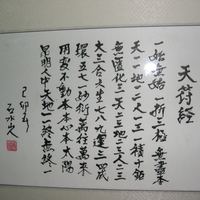 天符経
一始無始一析三極無盡本
天一一地一二人一三一積十鉅
無匱化三天二三地二三人二三
大三合六生七八九運三四成
環五七一妙衍萬往萬来
用変不動本本心本太陽
昂明人中天地一一終無終一
己卯